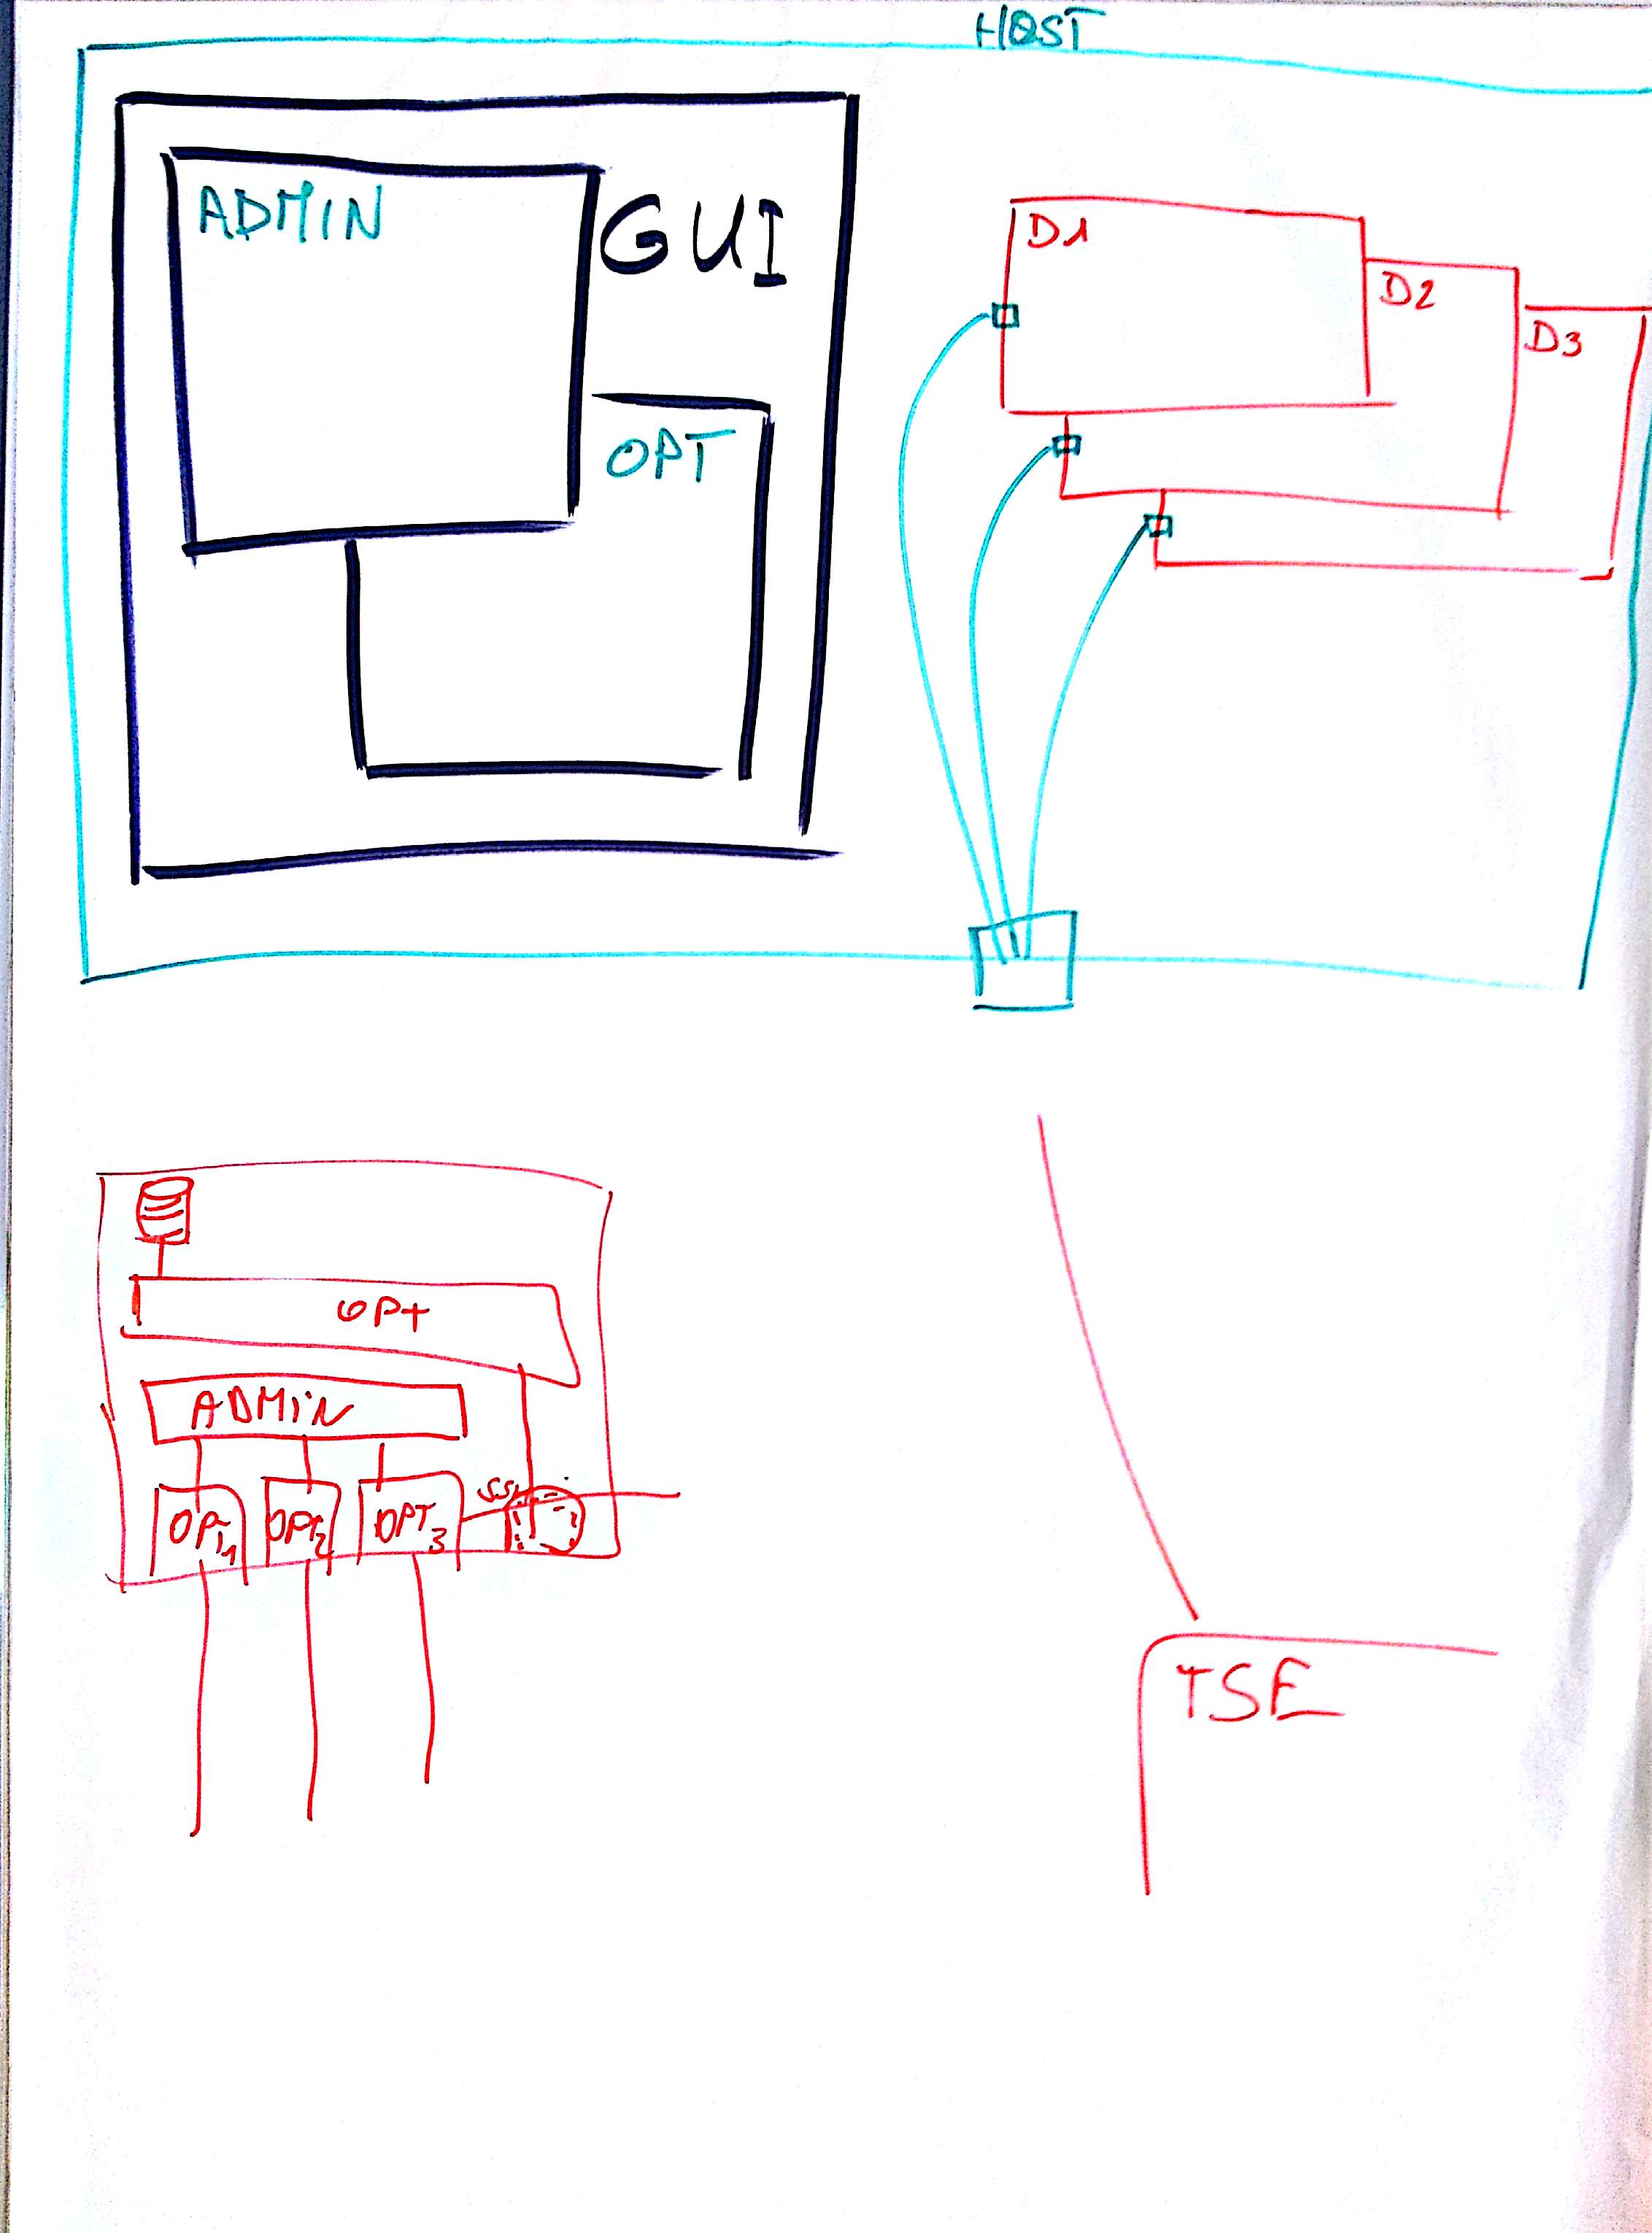 HOST
ADMIN
GUI
OPT
D1
D2
D3
OPT
ADMIN
OPT1
OPT2
OPT3
TSE